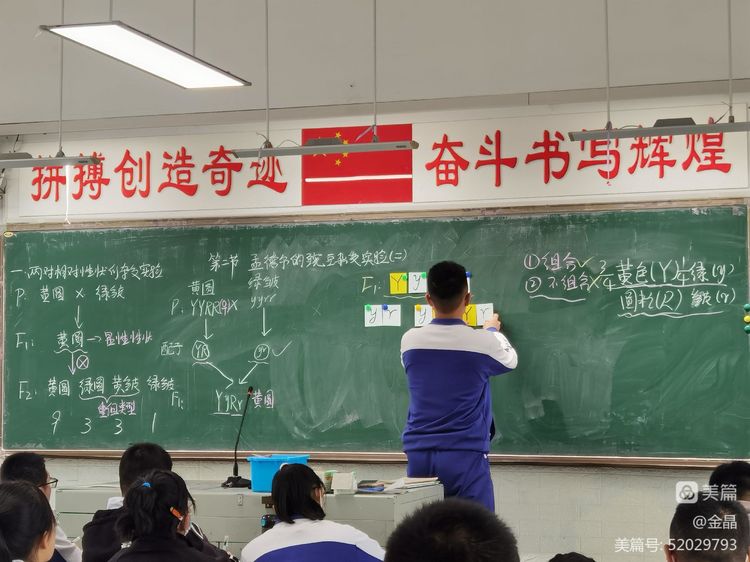 拼搏创造奇迹
奋斗书写辉煌
第二节 孟德尔的豌豆杂交实验(二)
一.两对相对性状的杂交实验
P: 黄圆 × 绿皱
F₁: 黄圆 → 显性性状
F₂: 黄圆 绿圆 黄皱 绿皱
重组类型
9 3 3 1
黄圆 绿皱
P: YYRR × yyrr
配子 YR yr
F₁: YyRr 黄圆
F₁: Y y
y r
r
①组合✓
②不组合×
3/4 黄色(Y) 1/4 绿(y)
圆形(R) 皱(r)
美篇
@金晶
美篇号: 52029793